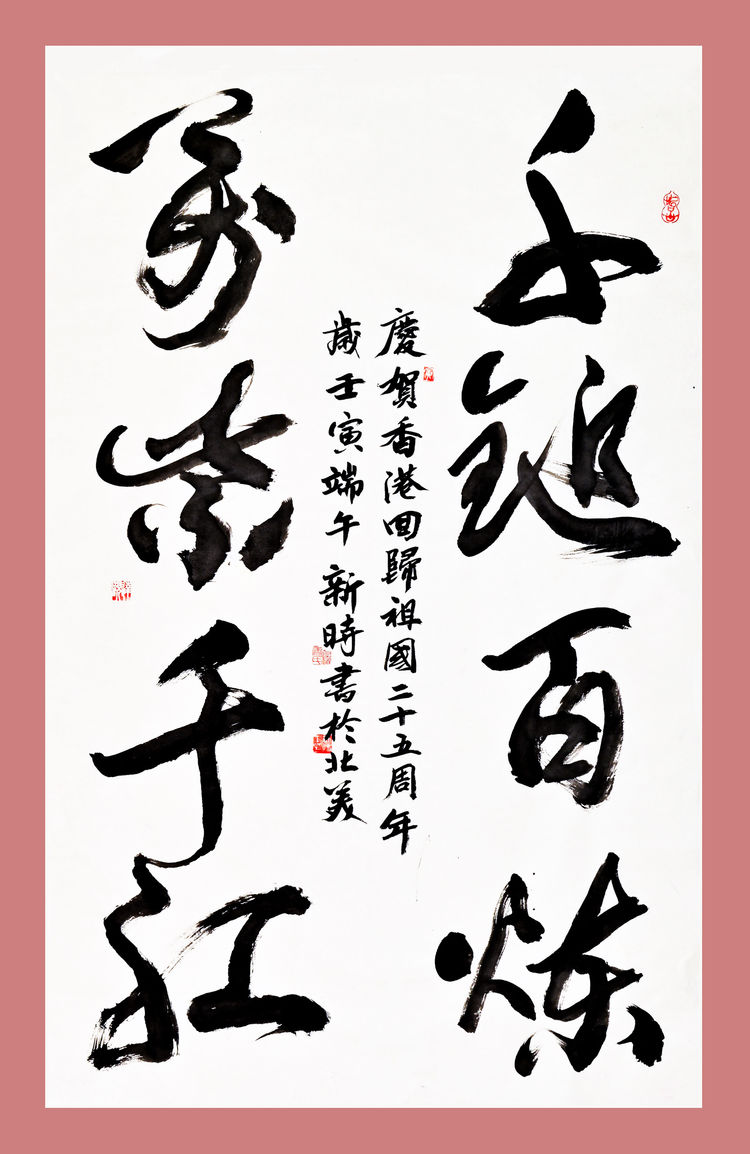 千鎚百煉
慶賀香港回歸祖國二十五周年
歲壬寅端午 新時書於北美
萬紫千紅